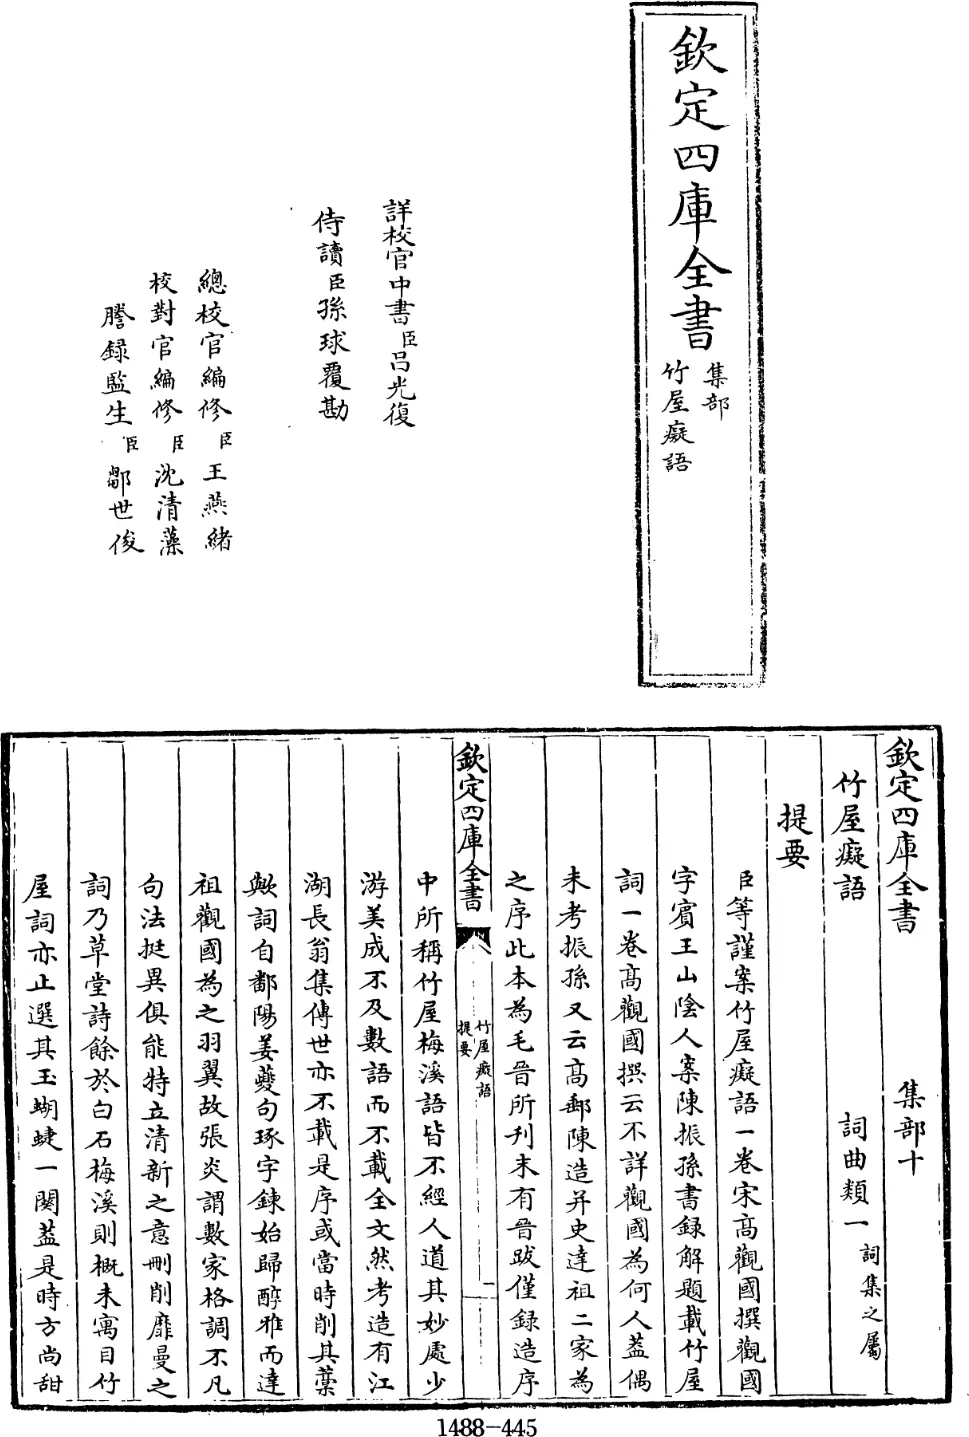 欽定四庫全書
集部
竹屋癡語
詳校官中書臣呂光復
侍讀臣孫球覆勘
總校官編修臣王燕緒
校對官編修臣沈清藻
謄錄監生臣鄒世俊
欽定四庫全書 集部十
竹屋癡語 詞曲類一 詞集之屬
提要
臣等謹案竹屋癡語一卷宋高觀國撰觀國
字賓王山陰人案陳振孫書録解題載竹屋
詞一卷髙觀國撰云不詳觀國為何人葢偶
未考振孫又云高郵陳造并史達祖二家為
之序此本為毛晉所刊末有晉跋僅錄造序
中所稱竹屋梅溪語皆不經人道其妙處少
游美成不及數語而不載全文然考造有江
湖長翁集傳世亦不載是序或當時削其藁
歟詞自鄱陽姜夔句琢字鍊始歸醇雅而達
祖觀國為之羽翼故張炎謂數家格調不凡
句法挺異俱能特立清新之意刪削靡曼之
詞乃草堂詩餘於白石梅溪則概未寓目竹
屋詞亦止選其玉蝴蜨一闋葢是時方尚甜
欽定四庫全書
竹屋癡語
提要
一
1488-445